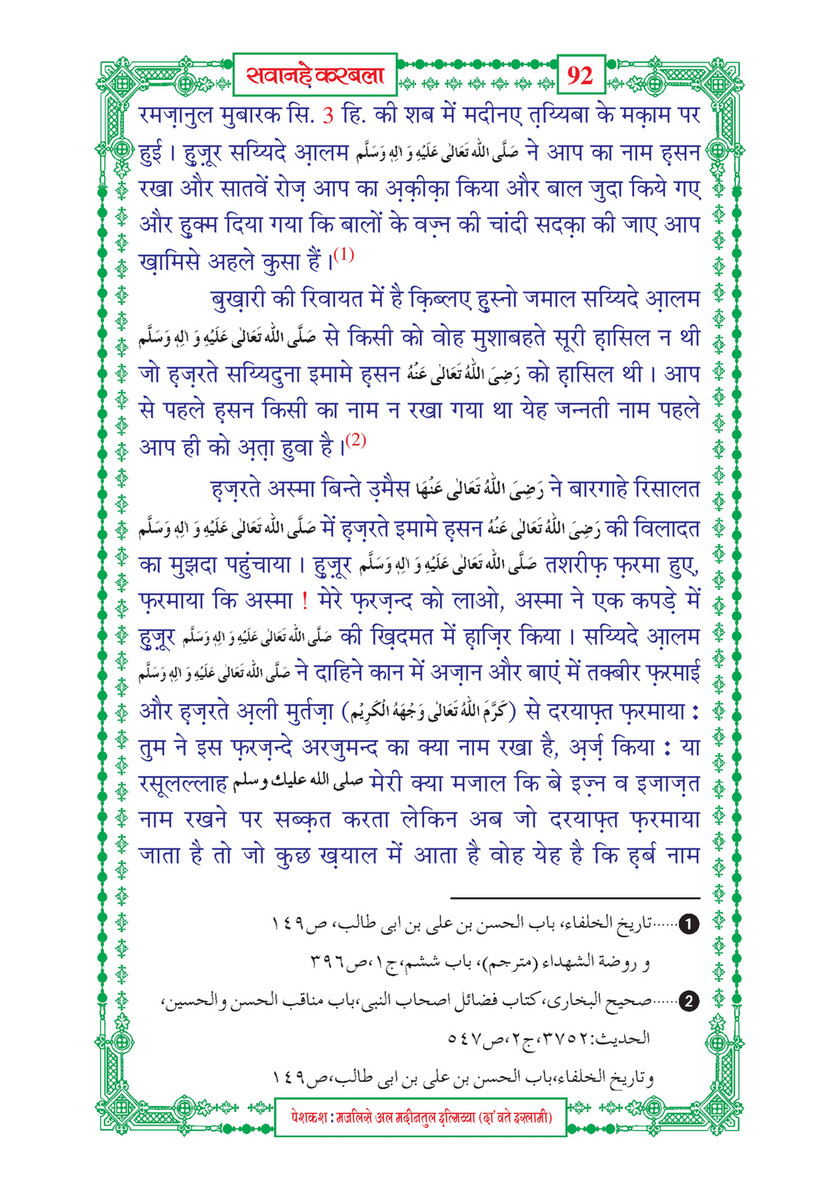 सवानहे करबला
92
रमज़ानुल मुबारक सि. 3 हि. की शब में मदीनए त़य्यिबा के मक़ाम पर
हुई । हुज़ूर सय्यिदे आ़लम صَلَّى اللهُ تَعَالٰى عَلَيْهِ وَ اٰلِهٖ وَسَلَّم ने आप का नाम ह़सन
रखा और सातवें रोज़ आप का अ़क़ीक़ा किया और बाल जुदा किये गए
और हुक्म दिया गया कि बालों के वज़्न की चांदी सदक़ा की जाए आप
ख़ामिसे अहले कुसा हैं ।(1)
बुख़ारी की रिवायत में है क़िब्लए हुस्नो जमाल सय्यिदे आ़लम
صَلَّى اللهُ تَعَالٰى عَلَيْهِ وَ اٰلِهٖ وَسَلَّم से किसी को वोह मुशाबहते सूरी ह़ासिल न थी
जो ह़ज़रते सय्यिदुना इमामे ह़सन رَضِىَ اللهُ تَعَالٰى عَنْهُ को ह़ासिल थी । आप
से पहले ह़सन किसी का नाम न रखा गया था येह जन्नती नाम पहले
आप ही को अ़त़ा हुवा है ।(2)
ह़ज़रते अस्मा बिन्ते उ़मैस رَضِىَ اللهُ تَعَالٰى عَنْهَا ने बारगाहे रिसालत
صَلَّى اللهُ تَعَالٰى عَلَيْهِ وَ اٰلِهٖ وَسَلَّم में ह़ज़रते इमामे ह़सन رَضِىَ اللهُ تَعَالٰى عَنْهُ की विलादत
का मुझदा पहुंचाया । हुज़ूर صَلَّى اللهُ تَعَالٰى عَلَيْهِ وَ اٰلِهٖ وَسَلَّم तशरीफ़ फ़रमा हुए,
फ़रमाया कि अस्मा ! मेरे फ़रज़न्द को लाओ, अस्मा ने एक कपड़े में
हुज़ूर صَلَّى اللهُ تَعَالٰى عَلَيْهِ وَ اٰلِهٖ وَسَلَّم की ख़िदमत में ह़ाज़िर किया । सय्यिदे आ़लम
صَلَّى اللهُ تَعَالٰى عَلَيْهِ وَ اٰلِهٖ وَسَلَّم ने दाहिने कान में अज़ान और बाएं में तक्बीर फ़रमाई
और ह़ज़रते अ़ली मुर्तज़ा (كَرَّمَ اللهُ تَعَالٰى وَجْهَهُ الْكَرِيْم) से दरयाफ़्त फ़रमाया :
तुम ने इस फ़रज़न्दे अरजुमन्द का क्या नाम रखा है, अ़र्ज़ किया : या
रसूलल्लाह صلى الله عليك وسلم मेरी क्या मजाल कि बे इज़्न व इजाज़त
नाम रखने पर सब्क़त करता लेकिन अब जो दरयाफ़्त फ़रमाया
जाता है तो जो कुछ ख़याल में आता है वोह येह है कि ह़र्ब नाम
1......تاريخ الخلفاء، باب الحسن بن على بن ابى طالب، ص١٤٩
و روضة الشهداء (مترجم)، باب ششم،ج١،ص٣٩٦
2......صحيح البخارى،كتاب فضائل اصحاب النبى،باب مناقب الحسن والحسين،
الحديث:٣٧٥٢،ج٢،ص٥٤٧
وتاريخ الخلفاء،باب الحسن بن على بن ابى طالب،ص١٤٩
पेशकश : मजलिसे अल मदीनतुल इल्मिय्या (दा'वते इस्लामी)